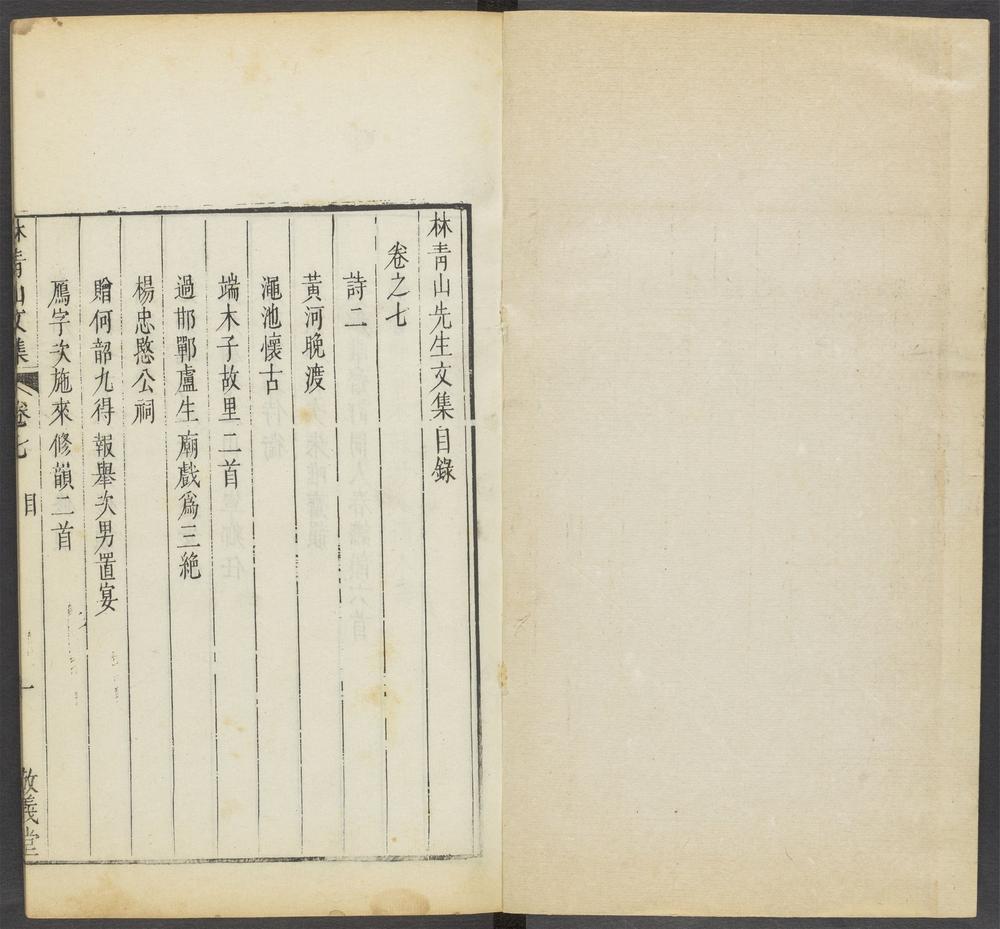 林青山先生文集目錄
卷之七
詩二
黃河晚渡
澠池懷古
端木子故里二首
過邯鄲盧生廟戲爲三絶
楊忠愍公祠
贈何韶九得報舉次男置宴
鴈字次施來修韻二首
林青山文集
卷七
目
一
敬義堂